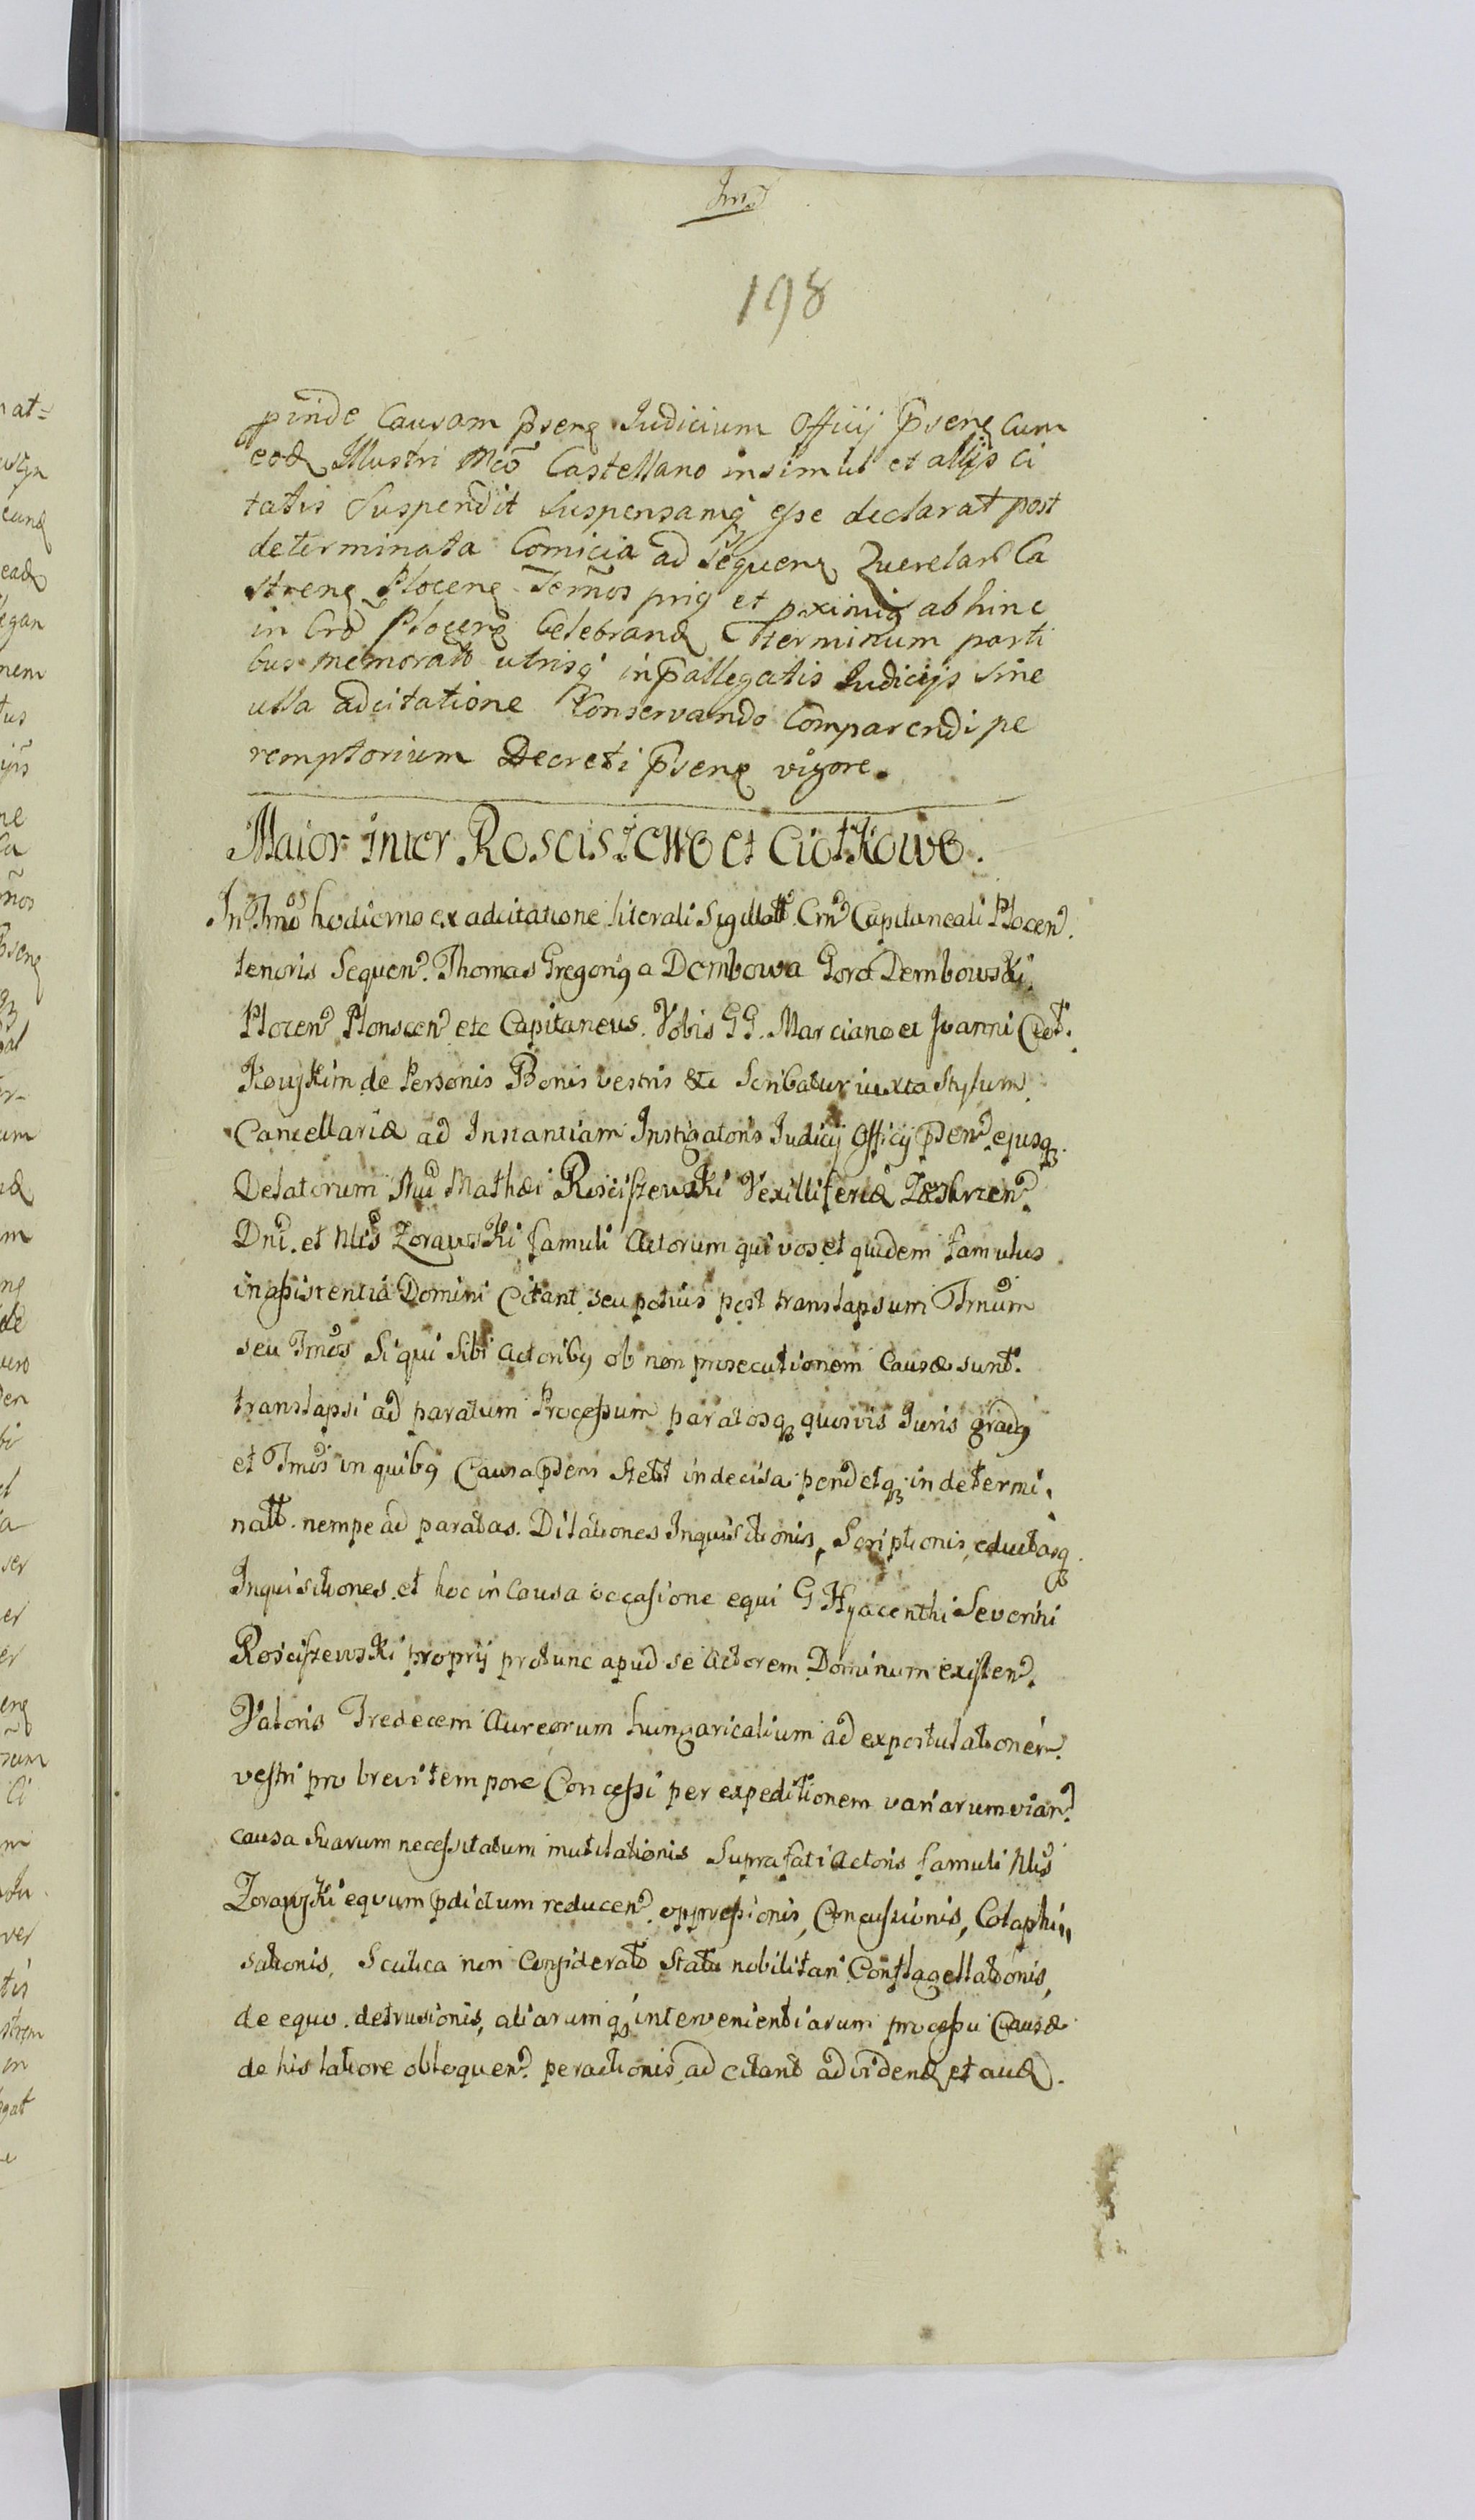 198
pinde Causam pseng Judicium Officij pseng cum
eod Illustri Mco Castellano insimul et alijs ci
tatis Suspendit Suspensamq esse declarat post
determinata Comicia ad Sequen Querelar Ca
streng Ploceng Termos prig et pximig abhinc
in Cro Ploceng Celebrand Terminum parti
bus memorato utrisq in pallegatis Judicijs Sine
ulla adcitatione Conservando Comparendi pe
remptorium Decreti pseng vigore.
Maior inter Rosciszewo et Ciotkowo.
In Tmo hodierno ex adcitatione literali Sigillatt Crn Capitaneali Plocen.
tenoris Sequen. Thomas Gregorig a Dembowa Gora Dembowski
Plocen Plonscen etc Capitaneus. Vobis GG. Marciano et Joanni Ciot.
Kowskim de Personis Bonis vestris &c Scribatur iuxta Stylum
Cancellariæ ad Instantiam Instigatoris Judicij Officij psen ejusq
Delatorum Mci Mathæi Rosciszewski Vexilliferidæ Zaskrzen
Dni. et Nlis Zorawski famuli Actorum qui vos et quidem famulus
in assistentia Domini Citant seu potius post translapsum Tmum
seu Tmos Si qui Sibi Actoribg ob non prosecutionem Causæ sunt
translapsi ad paratum Processum paratosq quosvis Juris gradg
et Tmos in quibg Causa psens Stett indecisa pendetq indetermi
natt. nempe ad paratas. Dilationes Inquisitionis, Scriptionis, eductasq
Inquisitiones. et hoc in Causa occasione equi G Hyacenthi Severini
Rosciszewski proprij protunc apud se Actorem Dominum existen.
Valoris Tredecem Aureorum hungaricalium ad expostulationem
vestri pro brevi tempore Concessi per expeditionem variarum viar
causa Suarum necessitatum mutilationis Suprafati Actoris famuli Nlis
Zorawski equum pdictum reducen. oppressionis, Concussionis, Colaphi„
sationis, Scutica non Considerato Statu nobilitari Conflagellationis,
de equo. detrusionis, aliarumq intervenientiarum processu Causæ
de his latiore obloquen. peractionis, ad citant ad viden et aud.